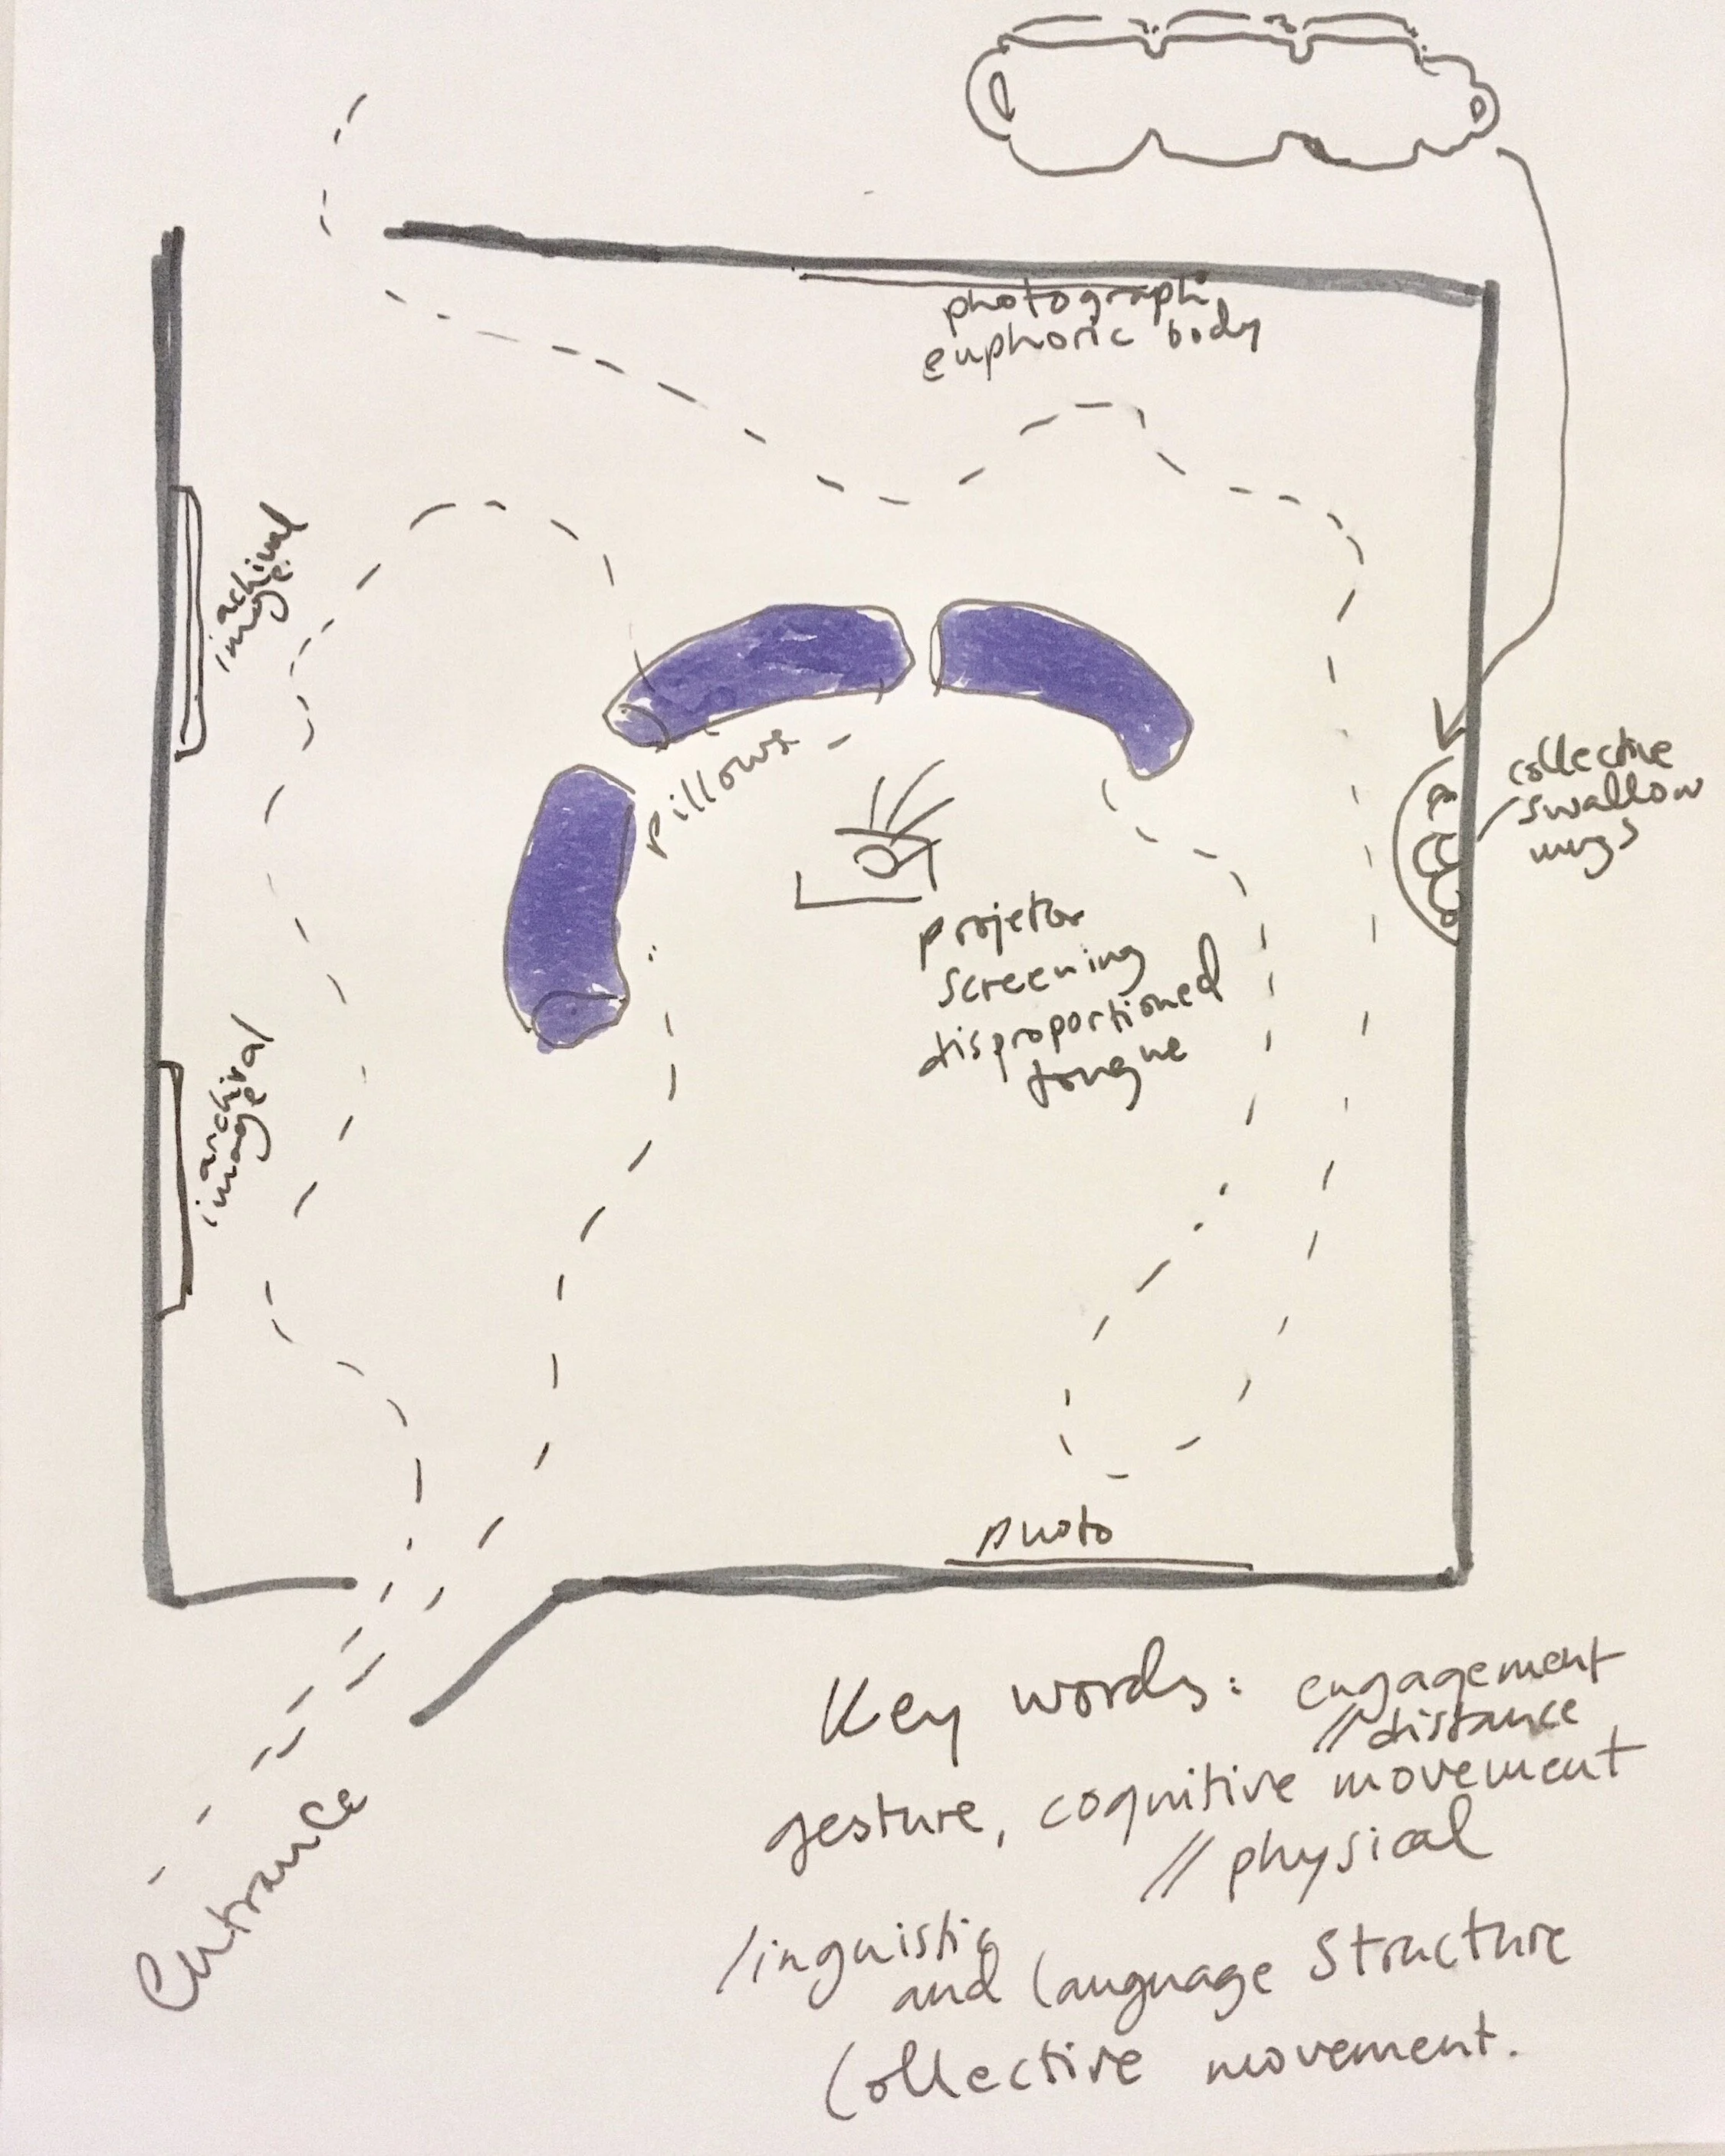 photograph
euphoric body
achival
image
pillows
collective
swallow
mugs
projetor
screening
disproportioned
tongue
archival
image
photo
Entrance
Key words: engagement
// distance
gesture, cognitive movement
// physical
linguistic
and language structure
Collective movement.